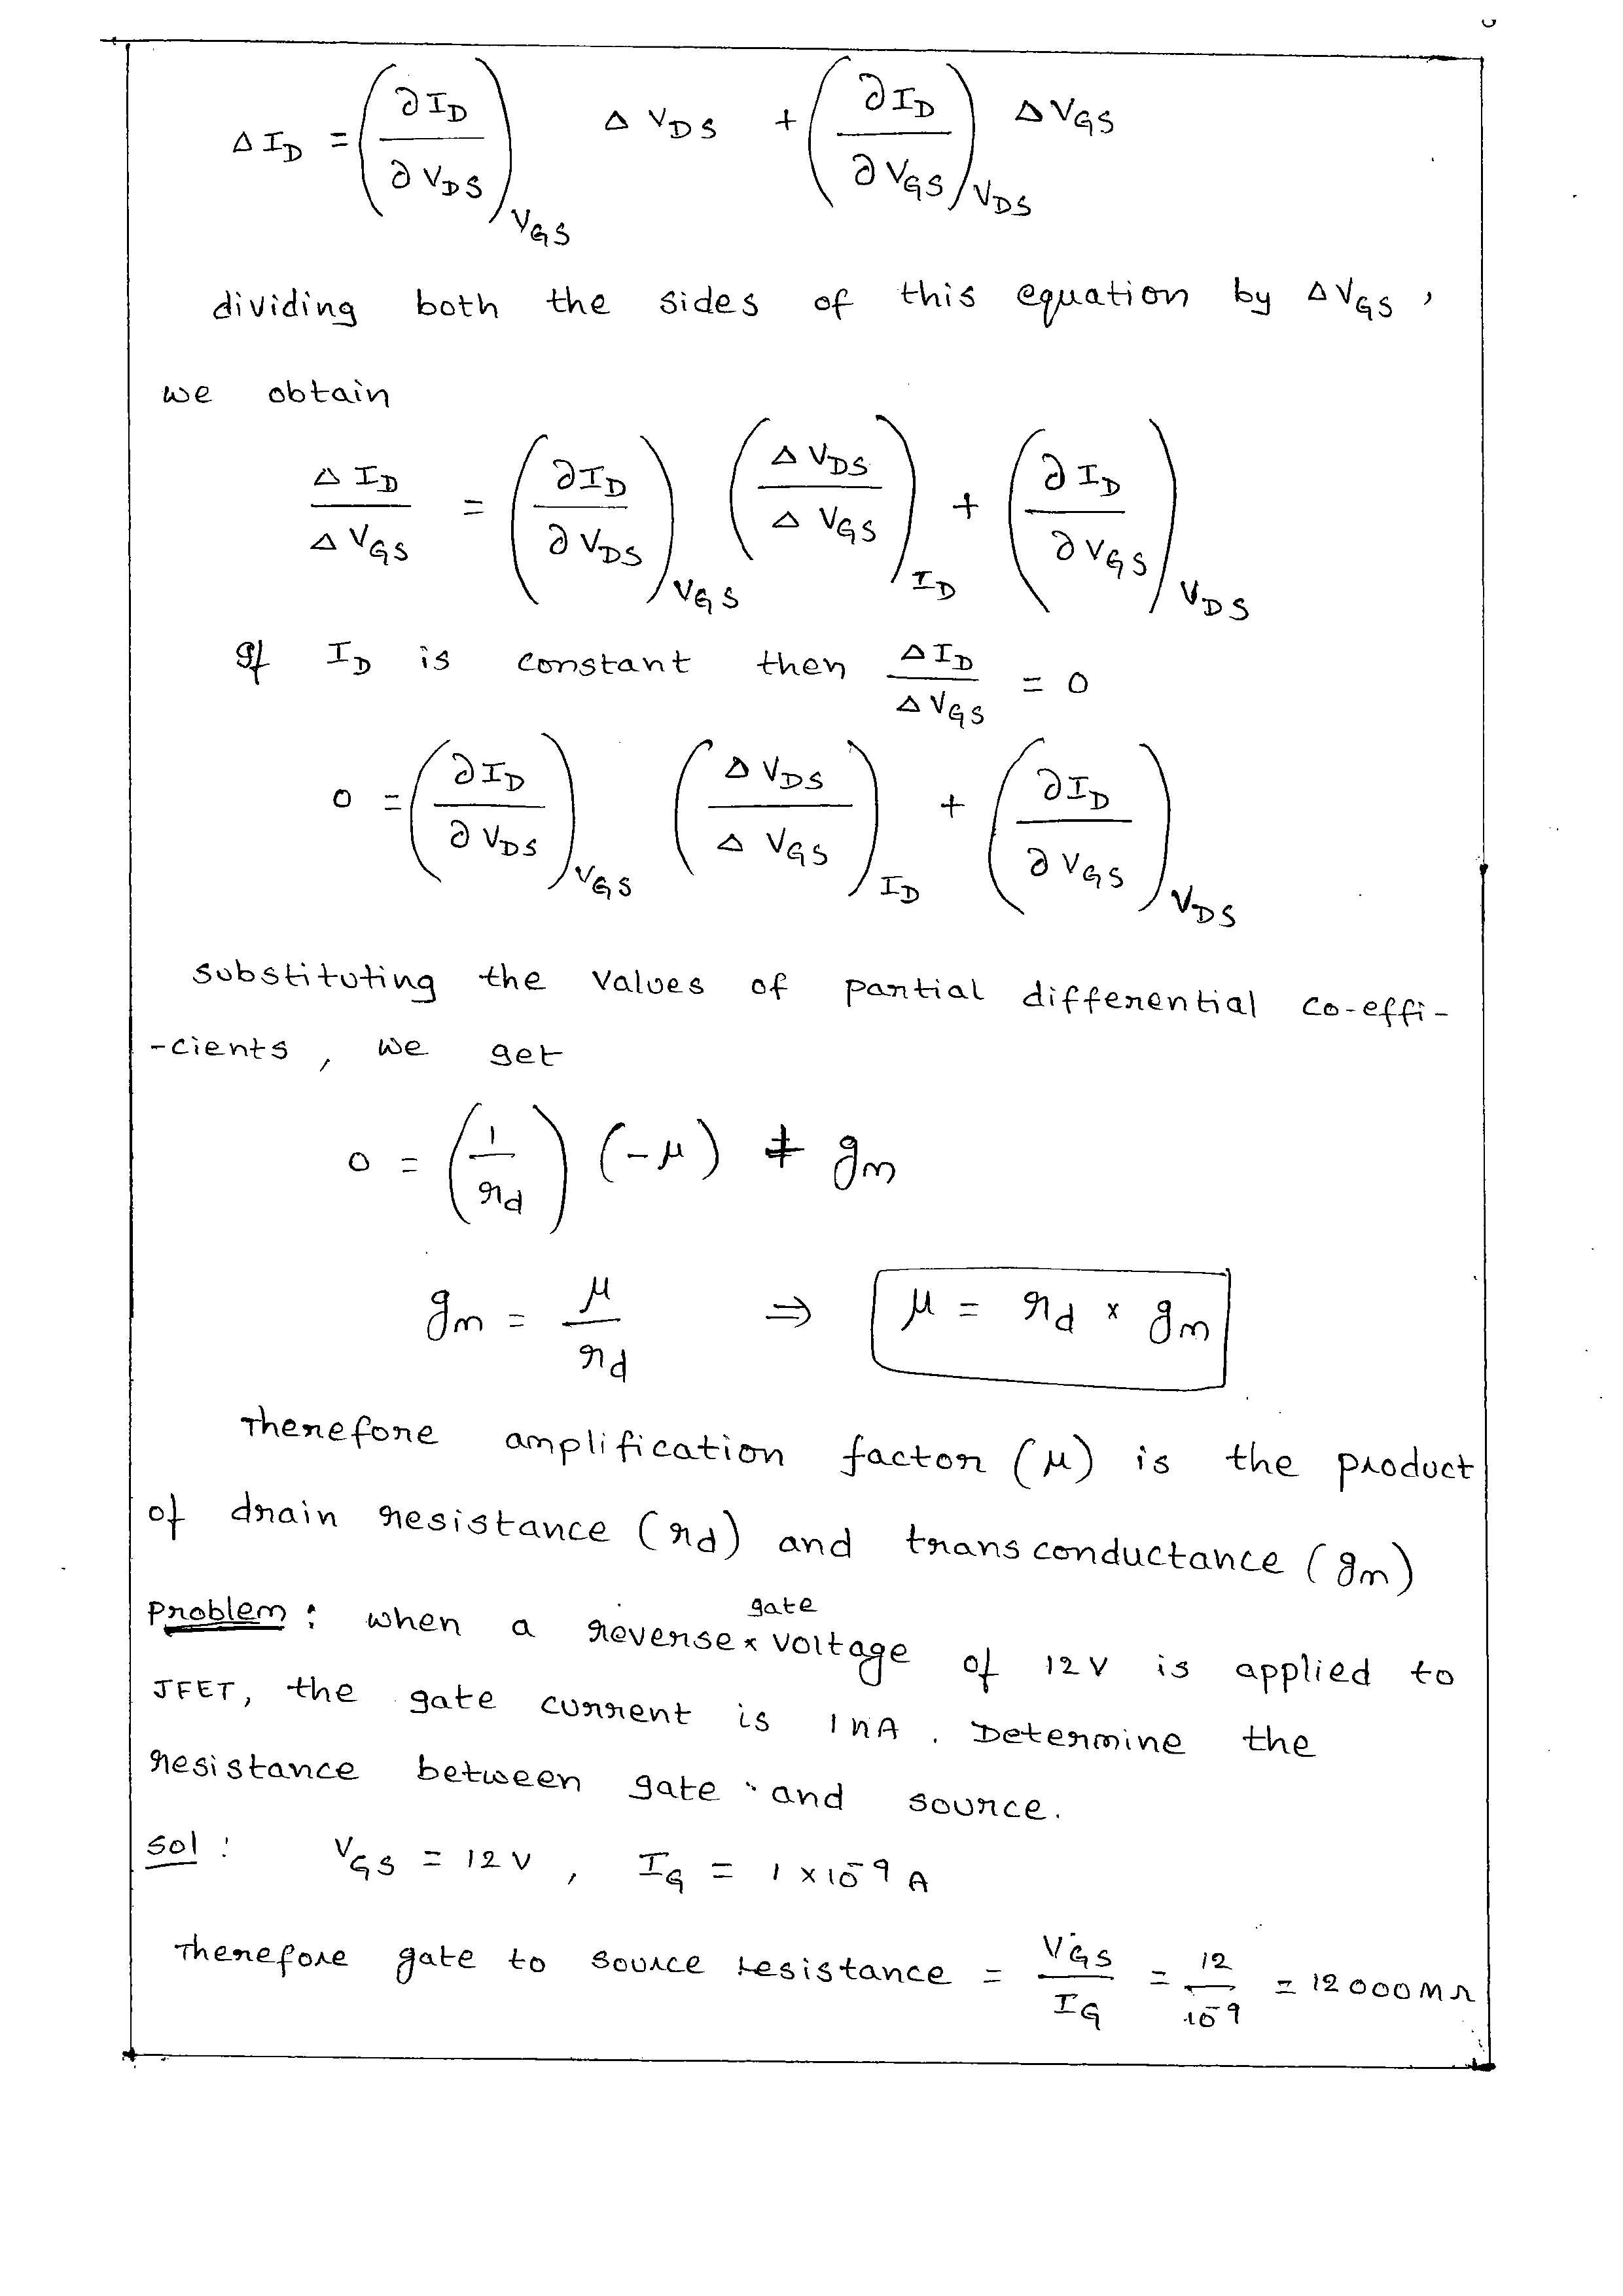 Δ I_D = (∂I_D / ∂V_DS)_V_GS Δ V_DS + (∂I_D / ∂V_GS)_V_DS Δ V_GS
dividing both the sides of this equation by Δ V_GS ,
we obtain
Δ I_D / Δ V_GS = (∂I_D / ∂V_DS)_V_GS (Δ V_DS / Δ V_GS)_I_D + (∂I_D / ∂V_GS)_V_DS
If I_D is constant then Δ I_D / Δ V_GS = 0
0 = (∂I_D / ∂V_DS)_V_GS (Δ V_DS / Δ V_GS)_I_D + (∂I_D / ∂V_GS)_V_DS
substituting the values of partial differential co-effi-
-cients , we get
0 = (1 / r_d) (-μ) + g_m
g_m = μ / r_d ⇒ μ = r_d × g_m
Therefore amplification factor (μ) is the product
of drain resistance (r_d) and transconductance (g_m)
Problem : when a reverse gate voltage of 12 V is applied to
JFET, the gate current is 1 nA . Determine the
resistance between gate and source.
sol : V_GS = 12 V , I_G = 1 × 10^-9 A
Therefore gate to source resistance = V_GS / I_G = 12 / 10^-9 = 12000 MΩ